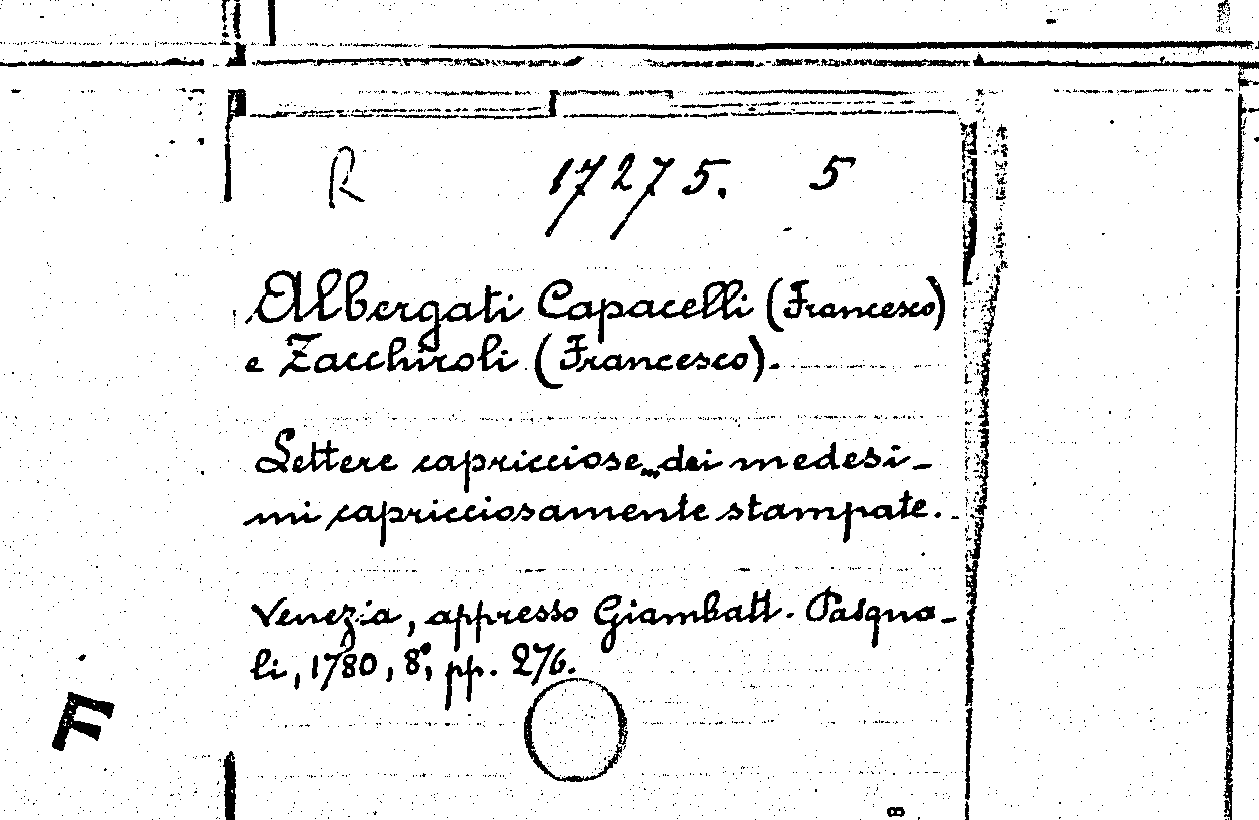 R 17275. 5
Albergati Capacelli (Francesco)
e Zacchiroli (Francesco).
Lettere capricciose... dei medesi-
mi capricciosamente stampate.
Venezia, appresso Giambatt. Pasqua-
li, 1780, 8º, pp. 276.
F